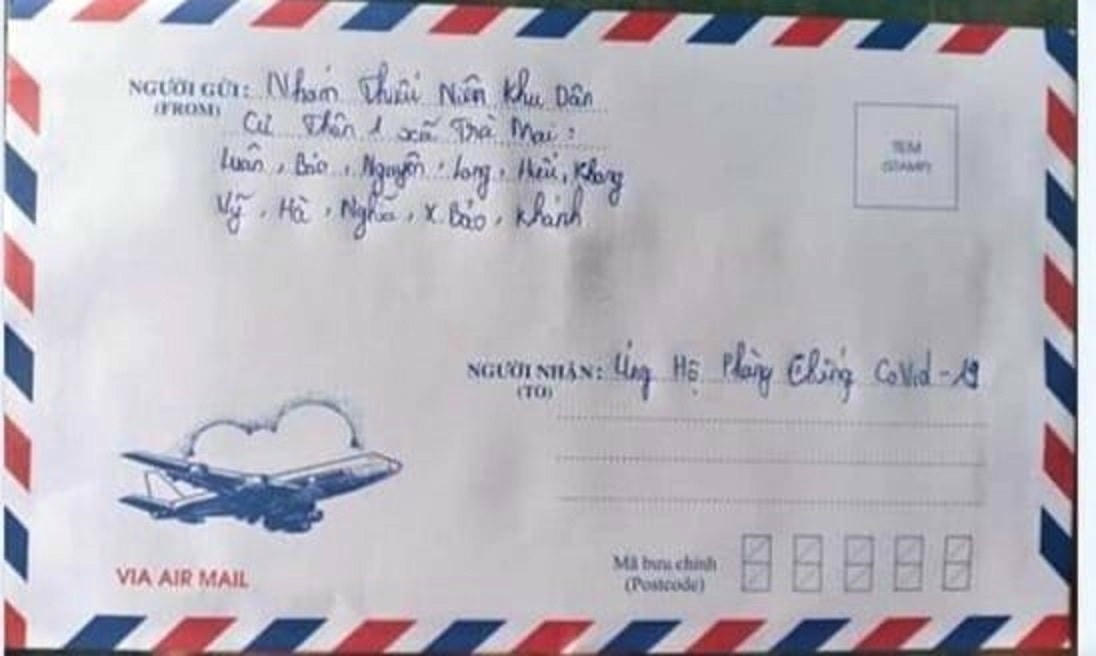 NGƯỜI GỬI: Nhóm Thiếu Niên Khu Dân
(FROM)
Cư Thôn 1 xã Trà Mai:
Luân, Bảo, Nguyên, Long, Hiếu, Khang
Vỹ, Hà, Nghĩa, X. Bảo, Khánh
TEM
(STAMP)
NGƯỜI NHẬN: Ủng Hộ Phòng Chống CoVid-19
(TO)
VIA AIR MAIL
Mã bưu chính
(Postcode)